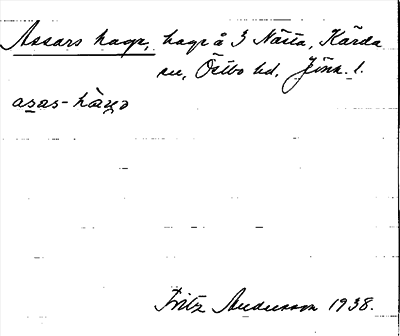 Assars hage, hage å 3 Nästa, Kärda
sn, Östbo hd, Jönk. l.
asas-hàgə
Fritz Andersson 1938.